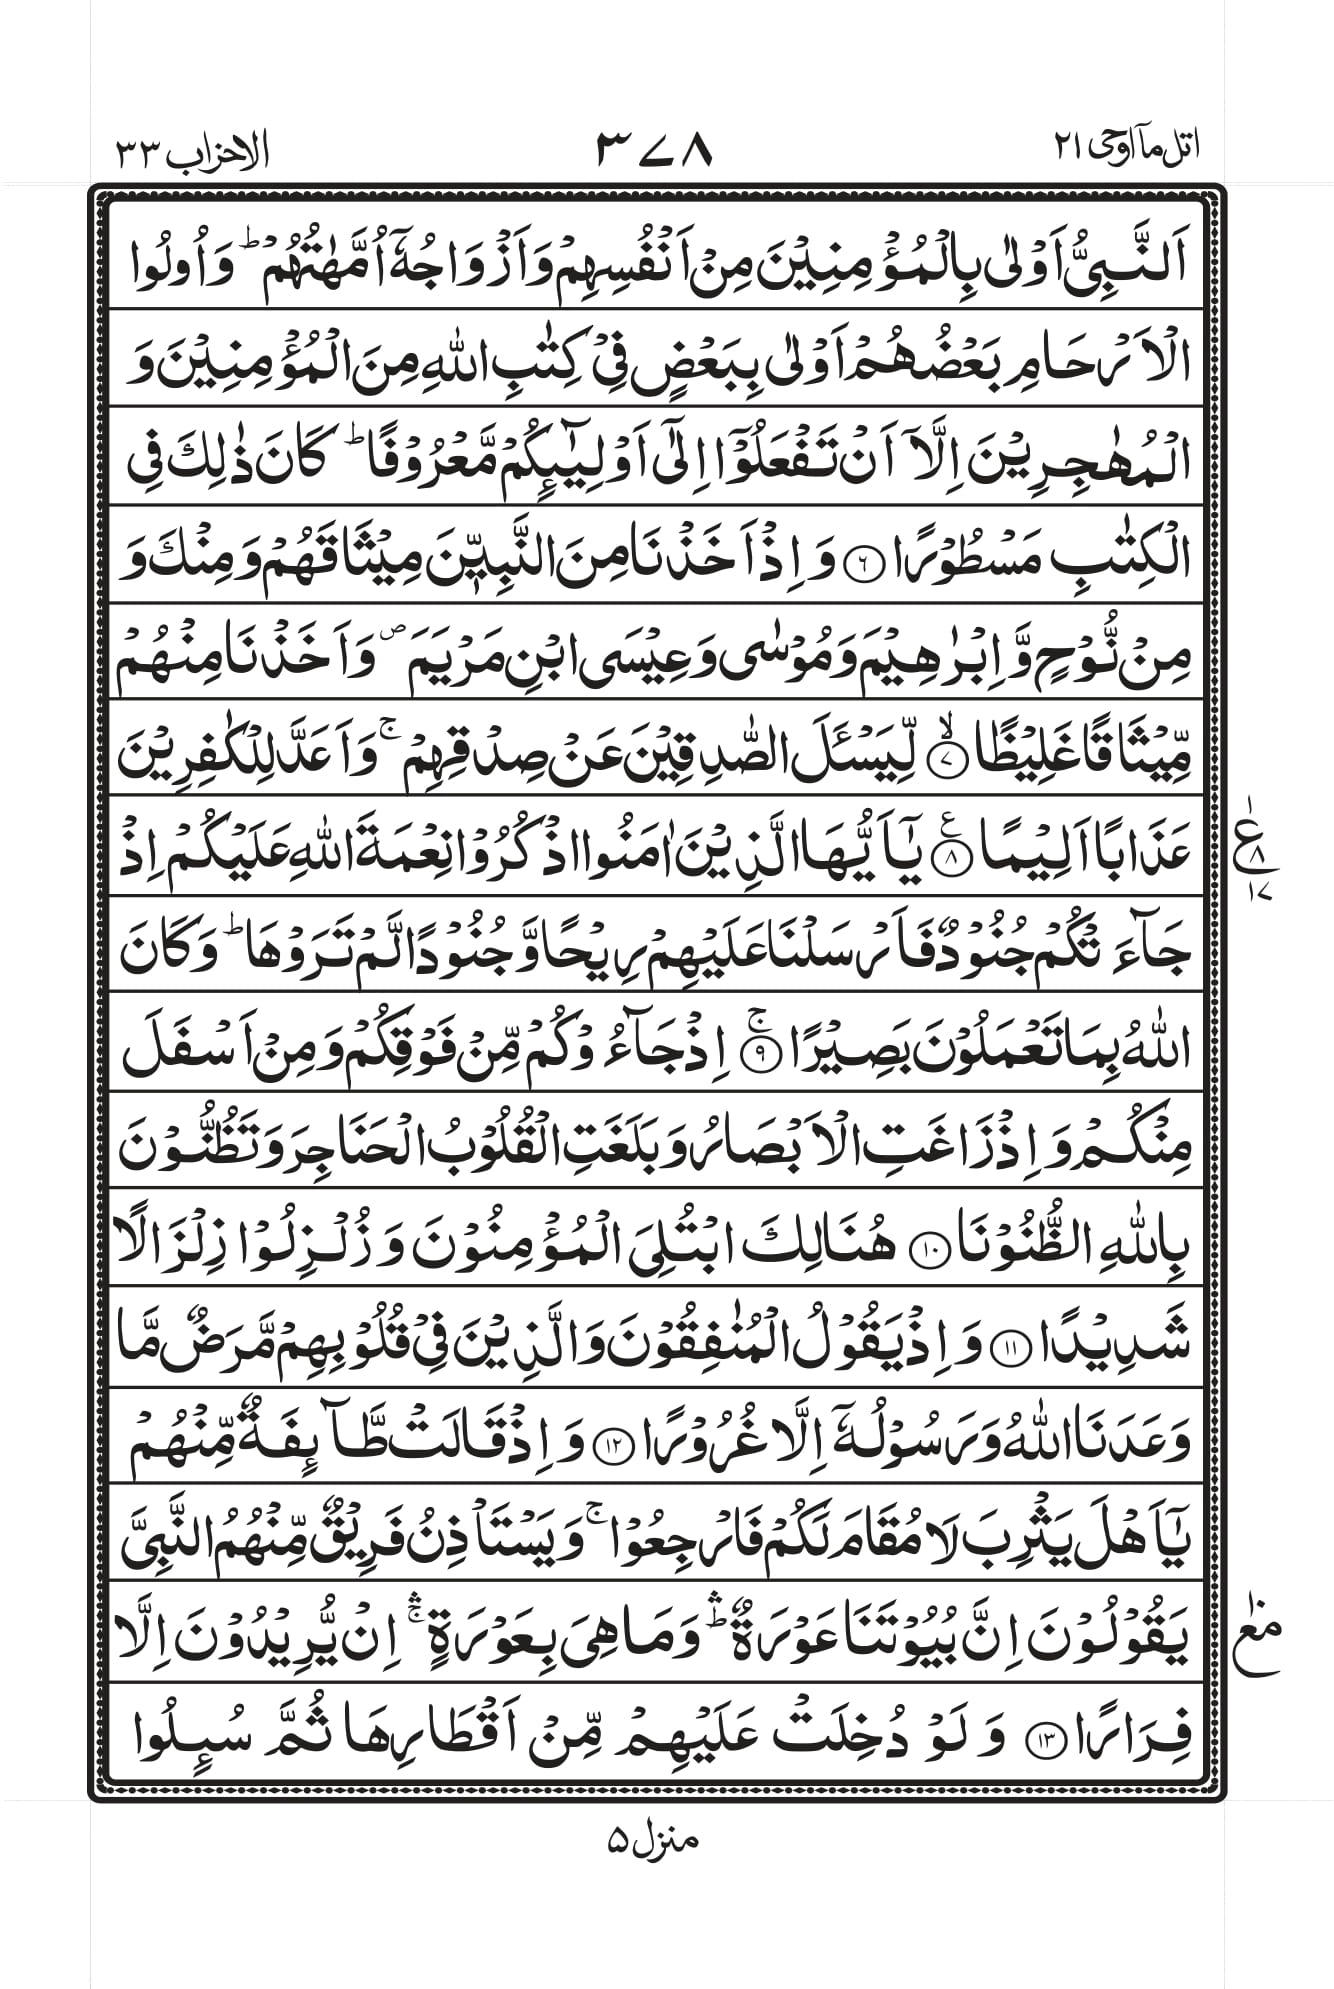 اتل مآ اوحی ۲۱
۳۷۸
الاحزاب ۳۳
اَلنَّبِيُّ اَوْلٰى بِالْمُؤْمِنِيْنَ مِنْ اَنْفُسِهِمْ وَاَزْوَاجُهٗۤ اُمَّهٰتُهُمْ ؕ وَاُولُوا
الْاَرْحَامِ بَعْضُهُمْ اَوْلٰى بِبَعْضٍ فِيْ كِتٰبِ اللّٰهِ مِنَ الْمُؤْمِنِيْنَ وَ
الْمُهٰجِرِيْنَ اِلَّاۤ اَنْ تَفْعَلُوْۤا اِلٰۤى اَوْلِيٰٓىِٕكُمْ مَّعْرُوْفًا ؕ كَانَ ذٰلِكَ فِي
الْكِتٰبِ مَسْطُوْرًا ۝۶ وَ اِذْ اَخَذْنَا مِنَ النَّبِيّٖنَ مِيْثَاقَهُمْ وَمِنْكَ وَ
مِنْ نُّوْحٍ وَّ اِبْرٰهِيْمَ وَمُوْسٰى وَعِيْسَى ابْنِ مَرْيَمَ ۪ وَاَخَذْنَا مِنْهُمْ
مِّيْثَاقًا غَلِيْظًا ۝۷ۙ لِّيَسْـَٔلَ الصّٰدِقِيْنَ عَنْ صِدْقِهِمْ ۚ وَاَعَدَّ لِلْكٰفِرِيْنَ
عَذَابًا اَلِيْمًا ۝۸ع يٰۤاَيُّهَا الَّذِيْنَ اٰمَنُوا اذْكُرُوْا نِعْمَةَ اللّٰهِ عَلَيْكُمْ اِذْ
۱
ع
۸
۱۷
جَآءَتْكُمْ جُنُوْدٌ فَاَرْسَلْنَا عَلَيْهِمْ رِيْحًا وَّ جُنُوْدًا لَّمْ تَرَوْهَا ؕ وَكَانَ
اللّٰهُ بِمَا تَعْمَلُوْنَ بَصِيْرًا ۝۹ۚ اِذْ جَآءُوْكُمْ مِّنْ فَوْقِكُمْ وَمِنْ اَسْفَلَ
مِنْكُمْ وَ اِذْ زَاغَتِ الْاَبْصَارُ وَبَلَغَتِ الْقُلُوْبُ الْحَنَاجِرَ وَتَظُنُّوْنَ
بِاللّٰهِ الظُّنُوْنَا ۝۱۰ هُنَالِكَ ابْتُلِيَ الْمُؤْمِنُوْنَ وَ زُلْزِلُوْا زِلْزَالًا
شَدِيْدًا ۝۱۱ وَ اِذْ يَقُوْلُ الْمُنٰفِقُوْنَ وَالَّذِيْنَ فِيْ قُلُوْبِهِمْ مَّرَضٌ مَّا
وَعَدَنَا اللّٰهُ وَرَسُوْلُهٗۤ اِلَّا غُرُوْرًا ۝۱۲ وَ اِذْ قَالَتْ طَّآىِٕفَةٌ مِّنْهُمْ
يٰۤاَهْلَ يَثْرِبَ لَا مُقَامَ لَكُمْ فَارْجِعُوْا ۚ وَيَسْتَاْذِنُ فَرِيْقٌ مِّنْهُمُ النَّبِيَّ
يَقُوْلُوْنَ اِنَّ بُيُوْتَنَا عَوْرَةٌ ؕۛ وَمَا هِيَ بِعَوْرَةٍ ۚۛ اِنْ يُّرِيْدُوْنَ اِلَّا
مع
فِرَارًا ۝۱۳ وَ لَوْ دُخِلَتْ عَلَيْهِمْ مِّنْ اَقْطَارِهَا ثُمَّ سُىِٕلُوا
منزل ۵